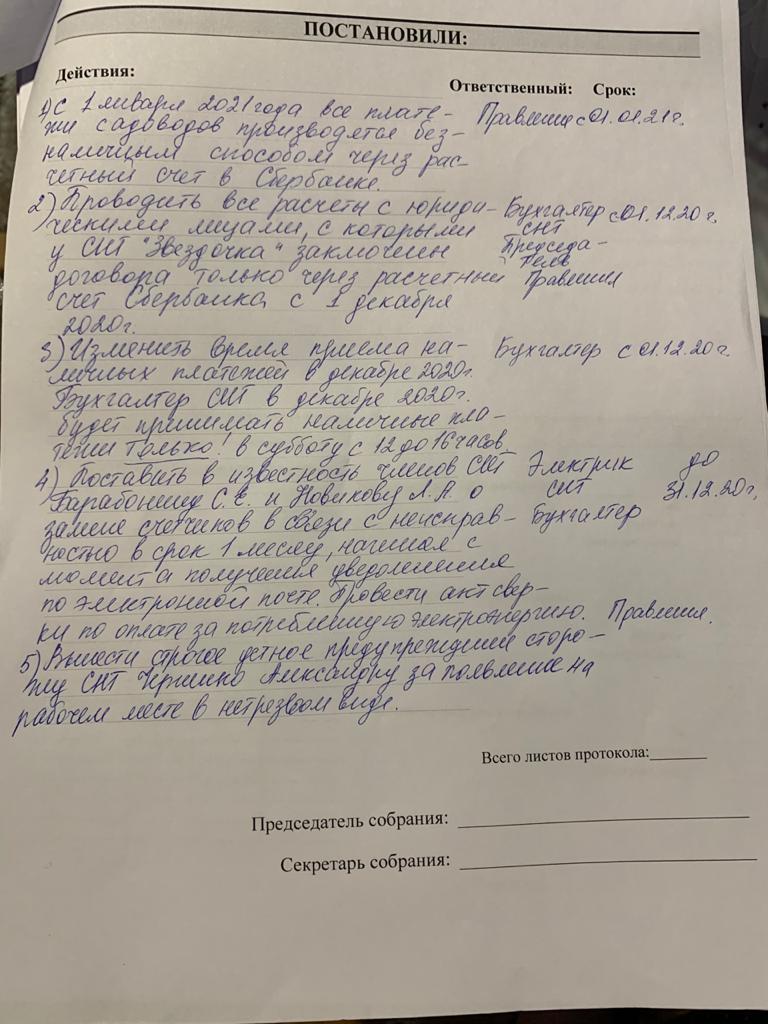 ПОСТАНОВИЛИ:
Действия:
Ответственный: Срок:
1) С 1 января 2021 года все плате- Правление с 01.01.21г.
жи садоводов производятся без-
наличным способом через рас-
четный счет в Сбербанке.
2) Проводить все расчеты с юриди- Бухгалтер с 01.12.20г.
ческими лицами, с которыми СНТ
у СНТ "Звездочка" заключены Председа-
тель
договора только через расчетный Правления
счет Сбербанка, с 1 декабря
2020г.
3) Изменить время приема на- Бухгалтер с 01.12.20г.
личных платежей в декабре 2020г.
Бухгалтер СНТ в декабре 2020г.
будет принимать наличные пла-
тежи только! в субботу с 12 до 16 часов
4) Поставить в известность членов СНТ Электрик до
Барабошину С.Е. и Новикову Л.А. о СНТ 31.12.20г.
замене счетчиков в связи с неисправ- Бухгалтер
ностью в срок 1 месяц, начиная с
момента получения уведомления
по электронной почте. Провести акт свер-
ки по оплате за потребленную электроэнергию. Правление.
5) Вынести строгое устное предупреждение сторо-
жу СНТ Александру за появление на
рабочем месте в нетрезвом виде.
Всего листов протокола:
Председатель собрания:
Секретарь собрания: